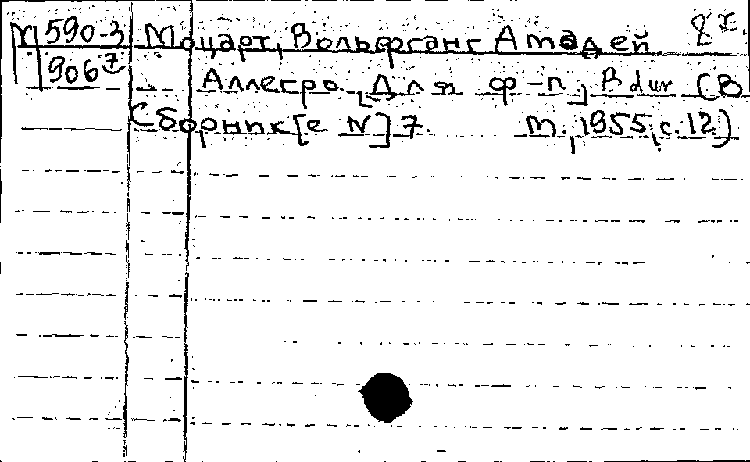 М 590-3 Моцарт, Вольфганг Амадей
906 7 Аллегро. [Для ф-п.] B dur (В
Сборник [е №] 7. М., 1955, с. 12)